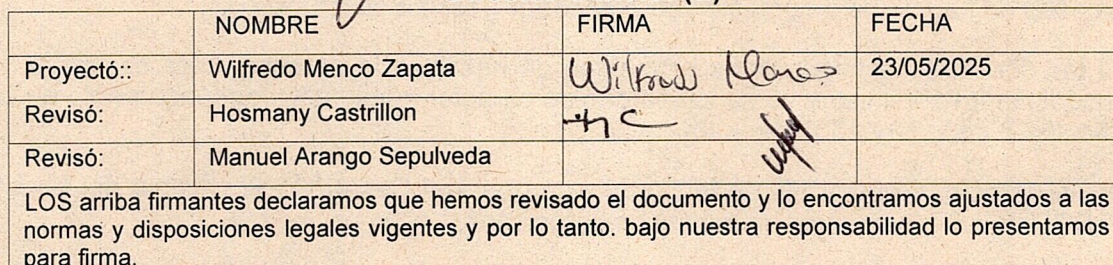 NOMBRE FIRMA FECHA
Proyectó:: Wilfredo Menco Zapata Wilfredo 23/05/2025
Revisó: Hosmany Castrillon HC
Revisó: Manuel Arango Sepulveda
LOS arriba firmantes declaramos que hemos revisado el documento y lo encontramos ajustados a las
normas y disposiciones legales vigentes y por lo tanto. bajo nuestra responsabilidad lo presentamos
para firma.